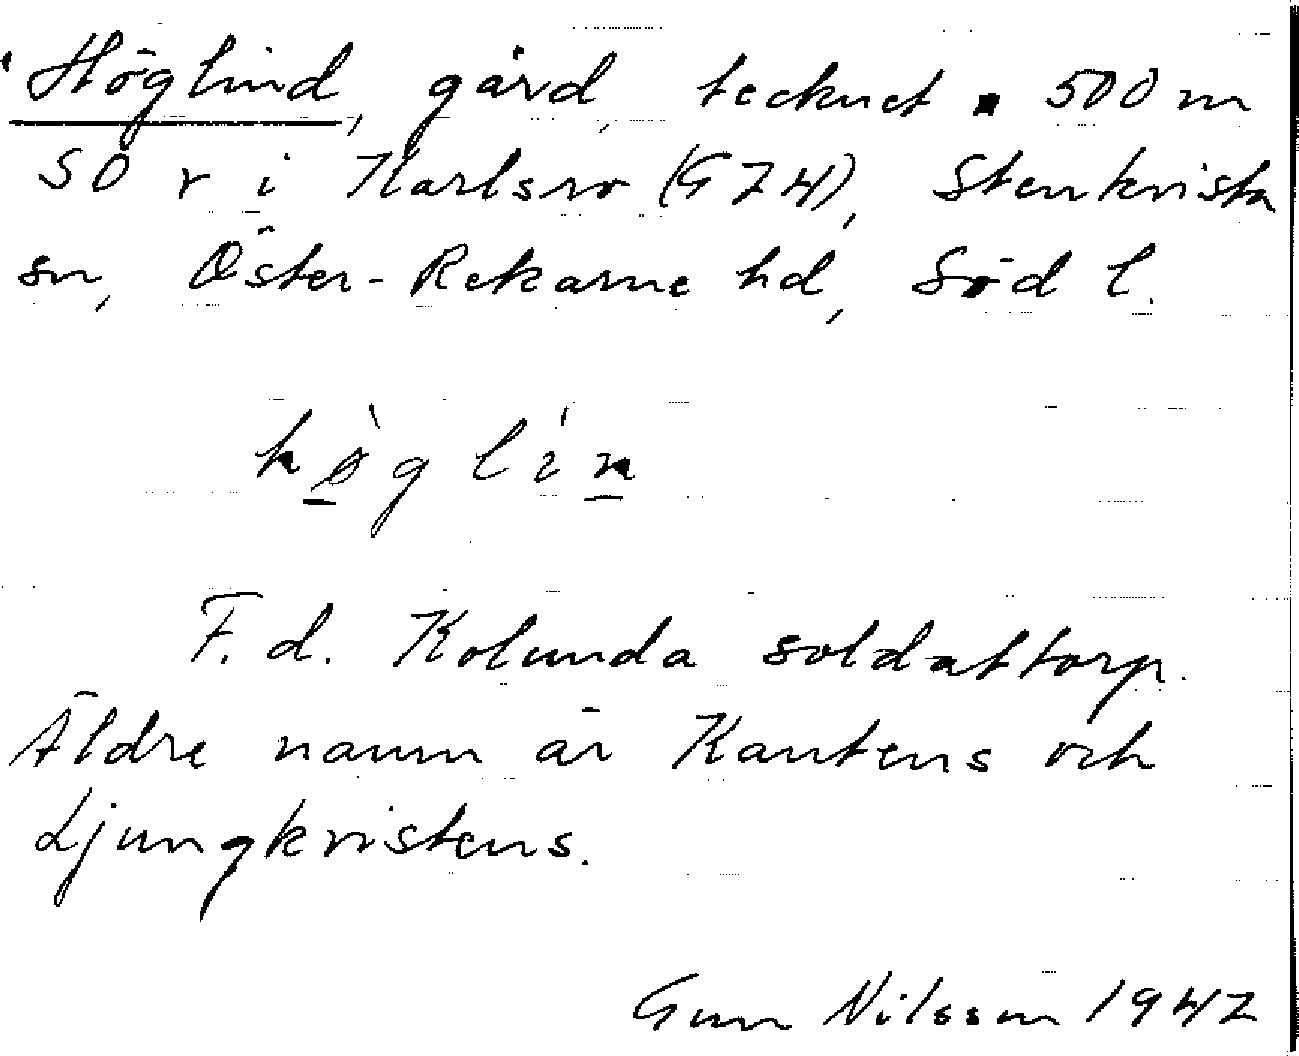 Höglind, gård, tecknet ▪ 500 m
SO r i Karlsro (G74), Stenkvista
sn, Öster-Rekarne hd, Söd l.
hø̀glín
F.d. Kolunda soldattorp.
Äldre namn är Kantens och
Ljungkvistens.
Gun Nilsson 1947